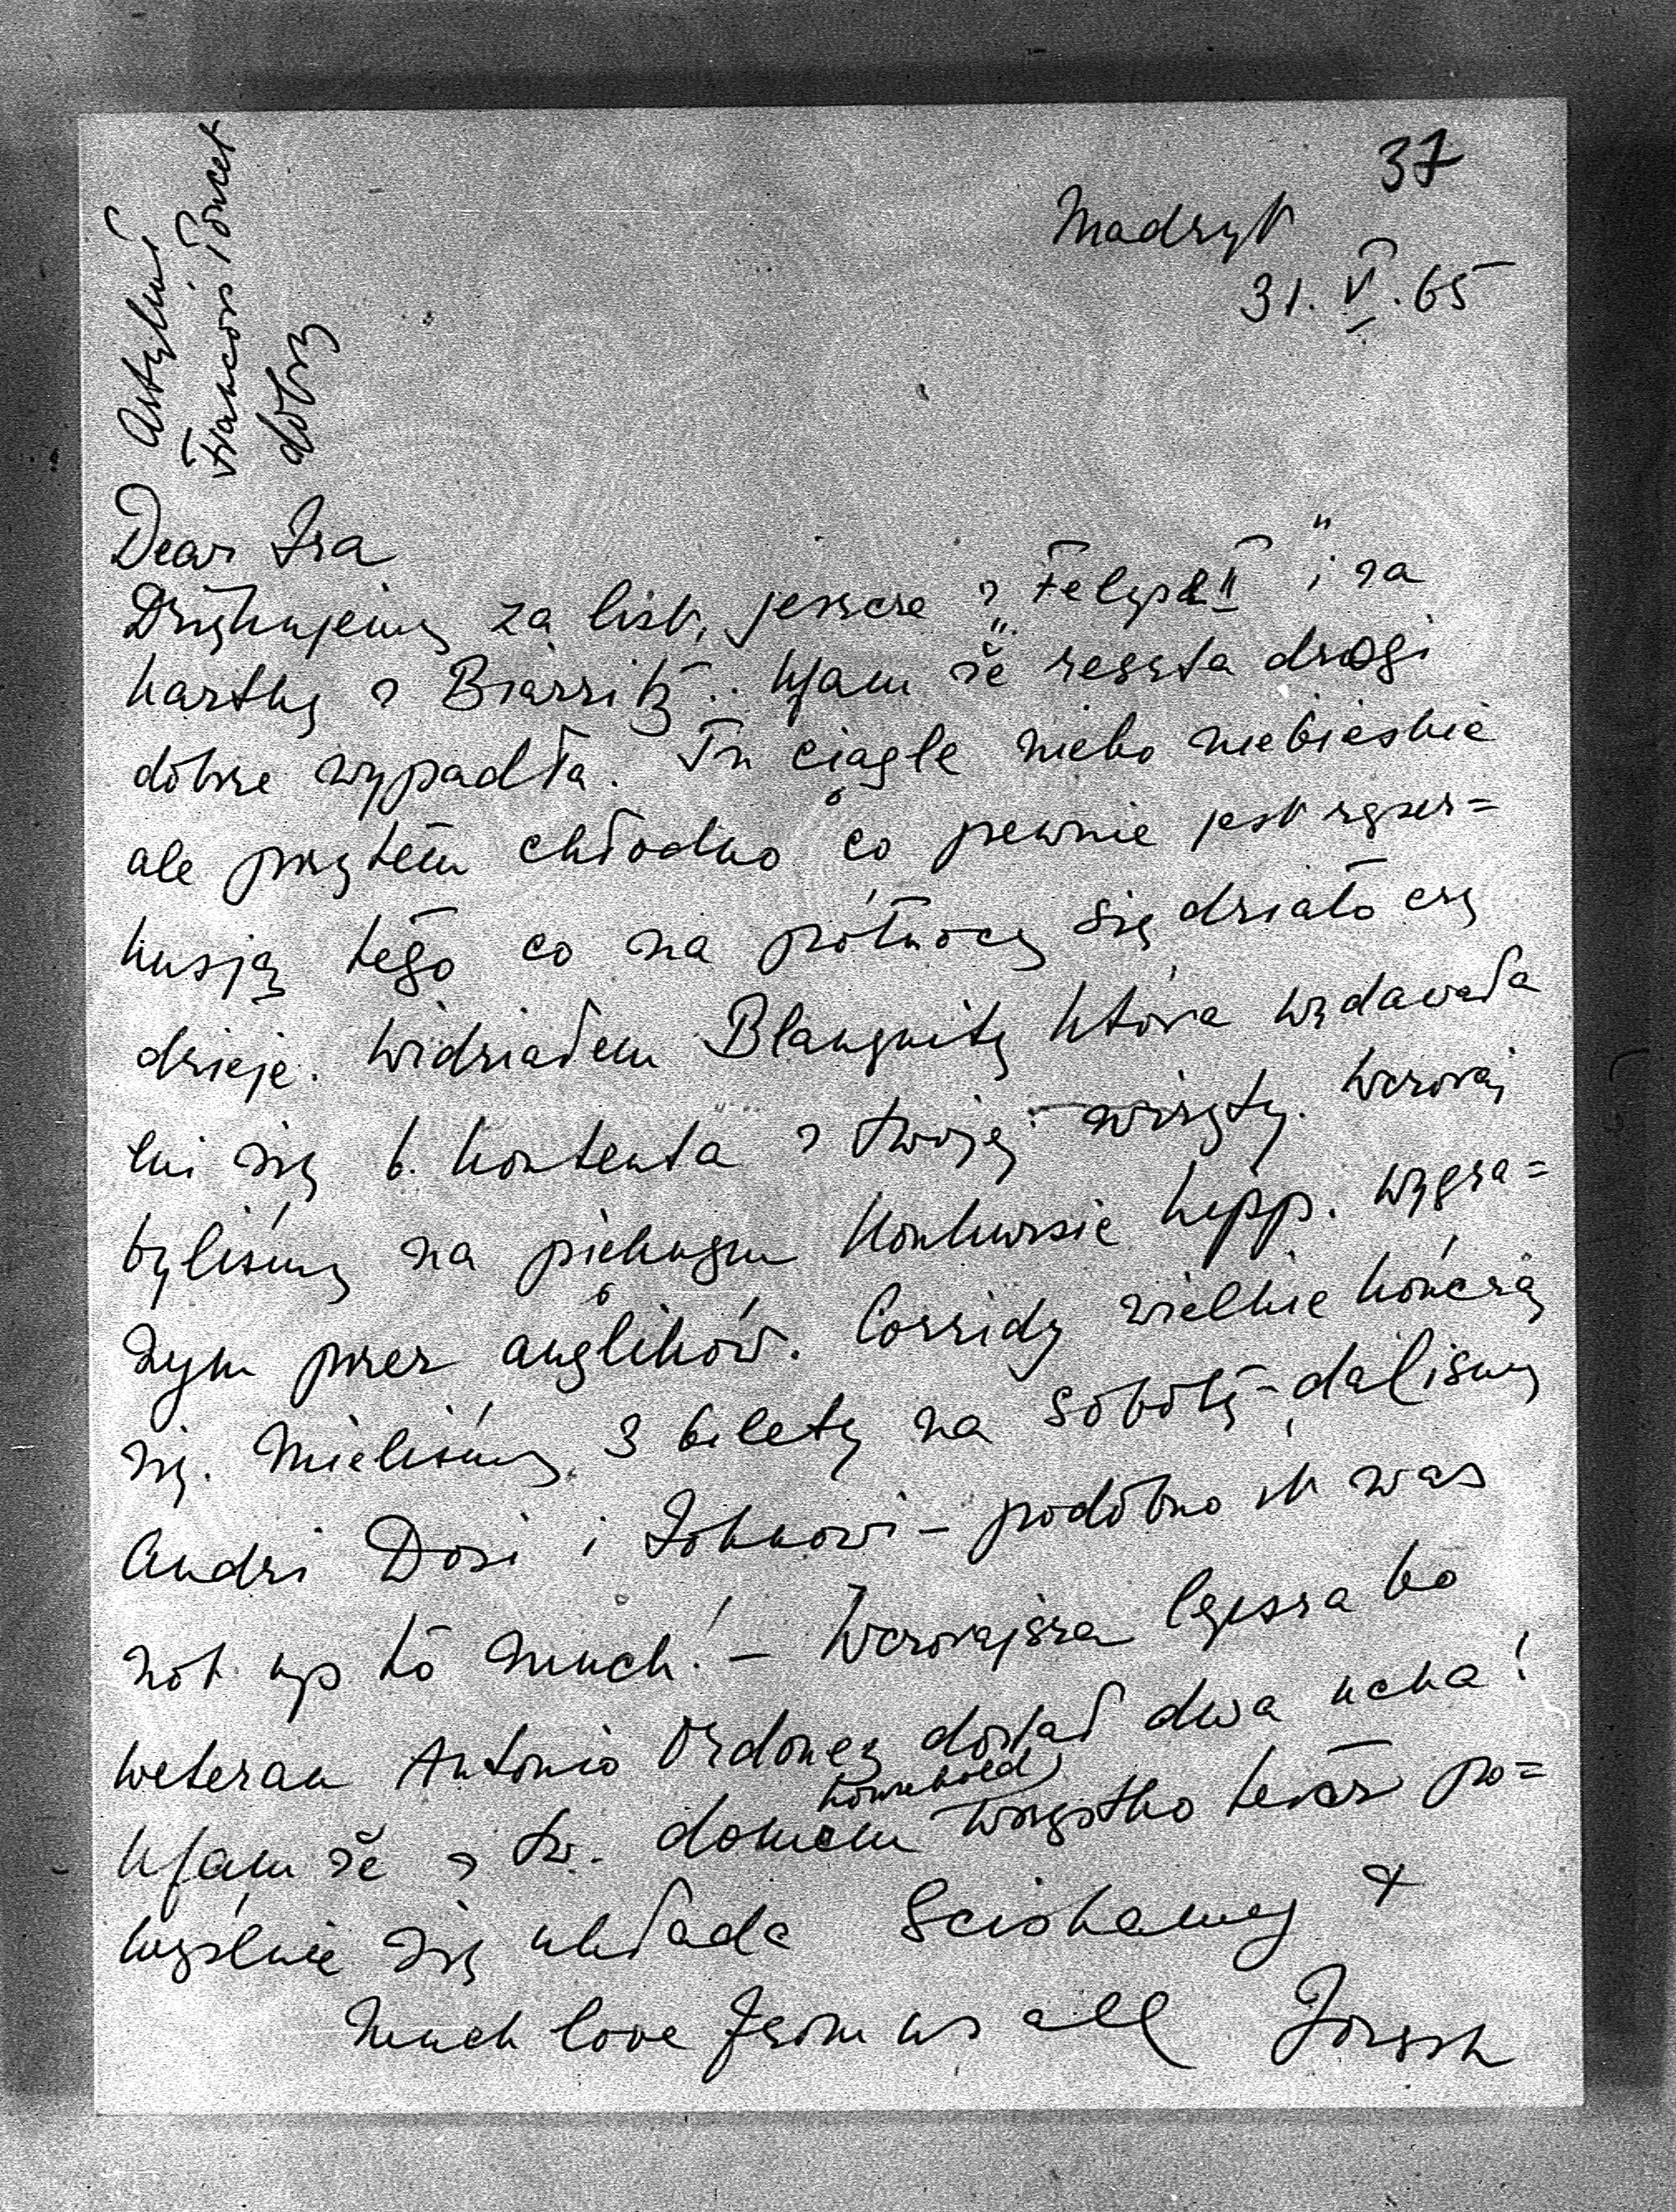 37
Madryt
31. V. 65
Artykuł
Francois Poncet
dobry
Dear Iza
Dziękujemy za list, jeszcze z „Felype II" i za
kartkę z Biarritz. Ufam że reszta drogi
dobrze wypadła. Tu ciągle niebo niebieskie
ale przytem chłodno co pewnie jest reper=
kusją tego co na północy się działo czy
dzieje. Widziałem Blanquitę która wydawała
mi się b. kontenta z twojej wizyty. Wczoraj
byliśmy na pięknym Konkursie hipp. wygra=
nym przez anglików. Corridy wielkie kończą
się. Mieliśmy 3 bilety na sobotę - daliśmy
Andzi Dosi i Johnowi - podobno it was
not up to much! - Wczorajsza lepsza bo
weteran Antonio Ordonez dostał dwa ucha!
Ufam że z tw. domem household wszystko teraz po=
myślnie się układa Ściskamy +
Much love from us all Józech